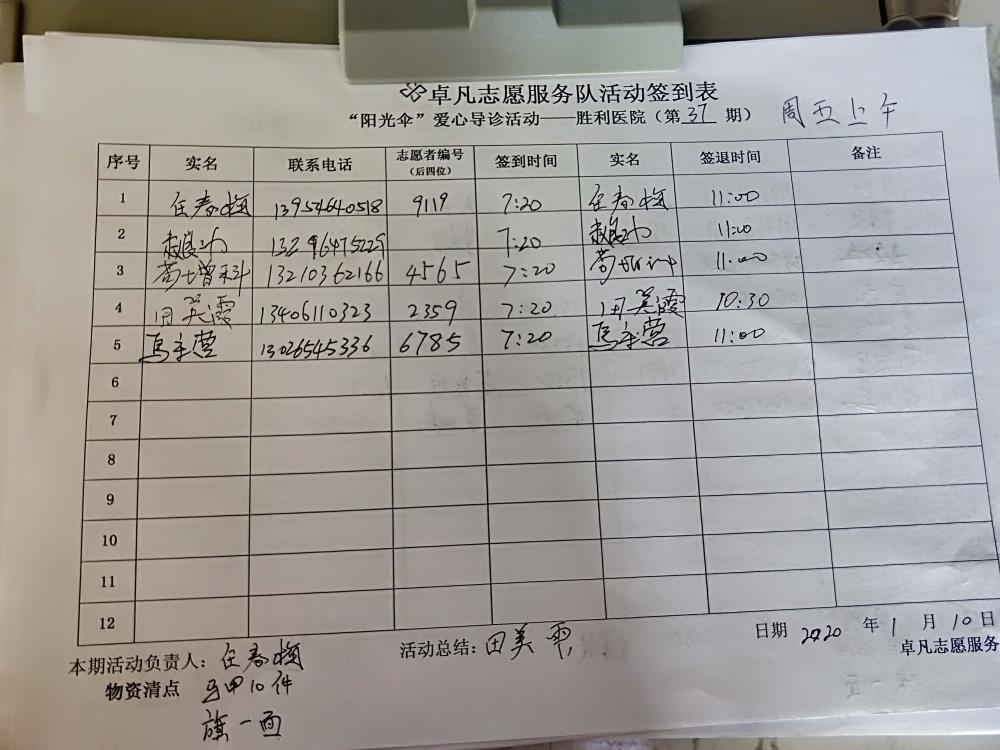 卓凡志愿服务队活动签到表
“阳光伞”爱心导诊活动——胜利医院（第37期） 周五上午
序号 实名 联系电话 志愿者编号（后四位） 签到时间 实名 签退时间 备注
1 任春梅 13954640518 9119 7:20 任春梅 11:00
2 13296475229 7:20 11:00
3 苟增科 13210362166 4565 7:20 11:00
4 田美霞 13406110323 2359 7:20 田美霞 10:30
5 13026545336 6785 7:20 11:00
6
7
8
9
10
11
12
本期活动负责人：任春梅 活动总结：田美霞 日期 2020 年 1 月 10 日
卓凡志愿服务
物资清点 马甲10件
旗一面